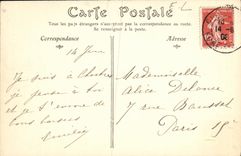 Carte Postale
Tous les pays étrangers n'acceptent pas la correspondance au recto.
Se renseigner à la poste.
Correspondance
Adresse
14 Juin
Je suis à
je pense à toi
et je t'envoie de
bons baisers
Mademoiselle
Alice Delaune
7 rue Beausset
Paris 15